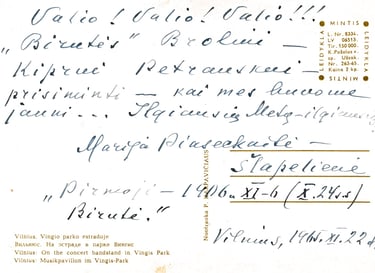 Valio! Valio! Valio!!!
„Birutės" Broliui —
Kiprui Petrauskui —
prisiminti — kai mes buvome
jauni... Ilgiausių Metų — ilgiausių
Marija Piaseckaitė —
Šlapelienė
„Pirmoji — 1906 XI-6 (X.24 s.s)
Birutė."
Vilnius, 1965.XI.22 d.
LEIDYKLA MINTIS LEIDYKLA MINTIS
L. Nr. 8334.
LV 06513.
Tir. 150 000.
sp. Užsak.
Nr. 263-65.
Kaina 3 kp.
Vilnius. Vingio parko estradoje
Вильнюс. На эстраде в парке Вингис
Vilnius: On the concert bandstand in Vingis Park
Vilnius: Musikpavillon im Vingis-Park